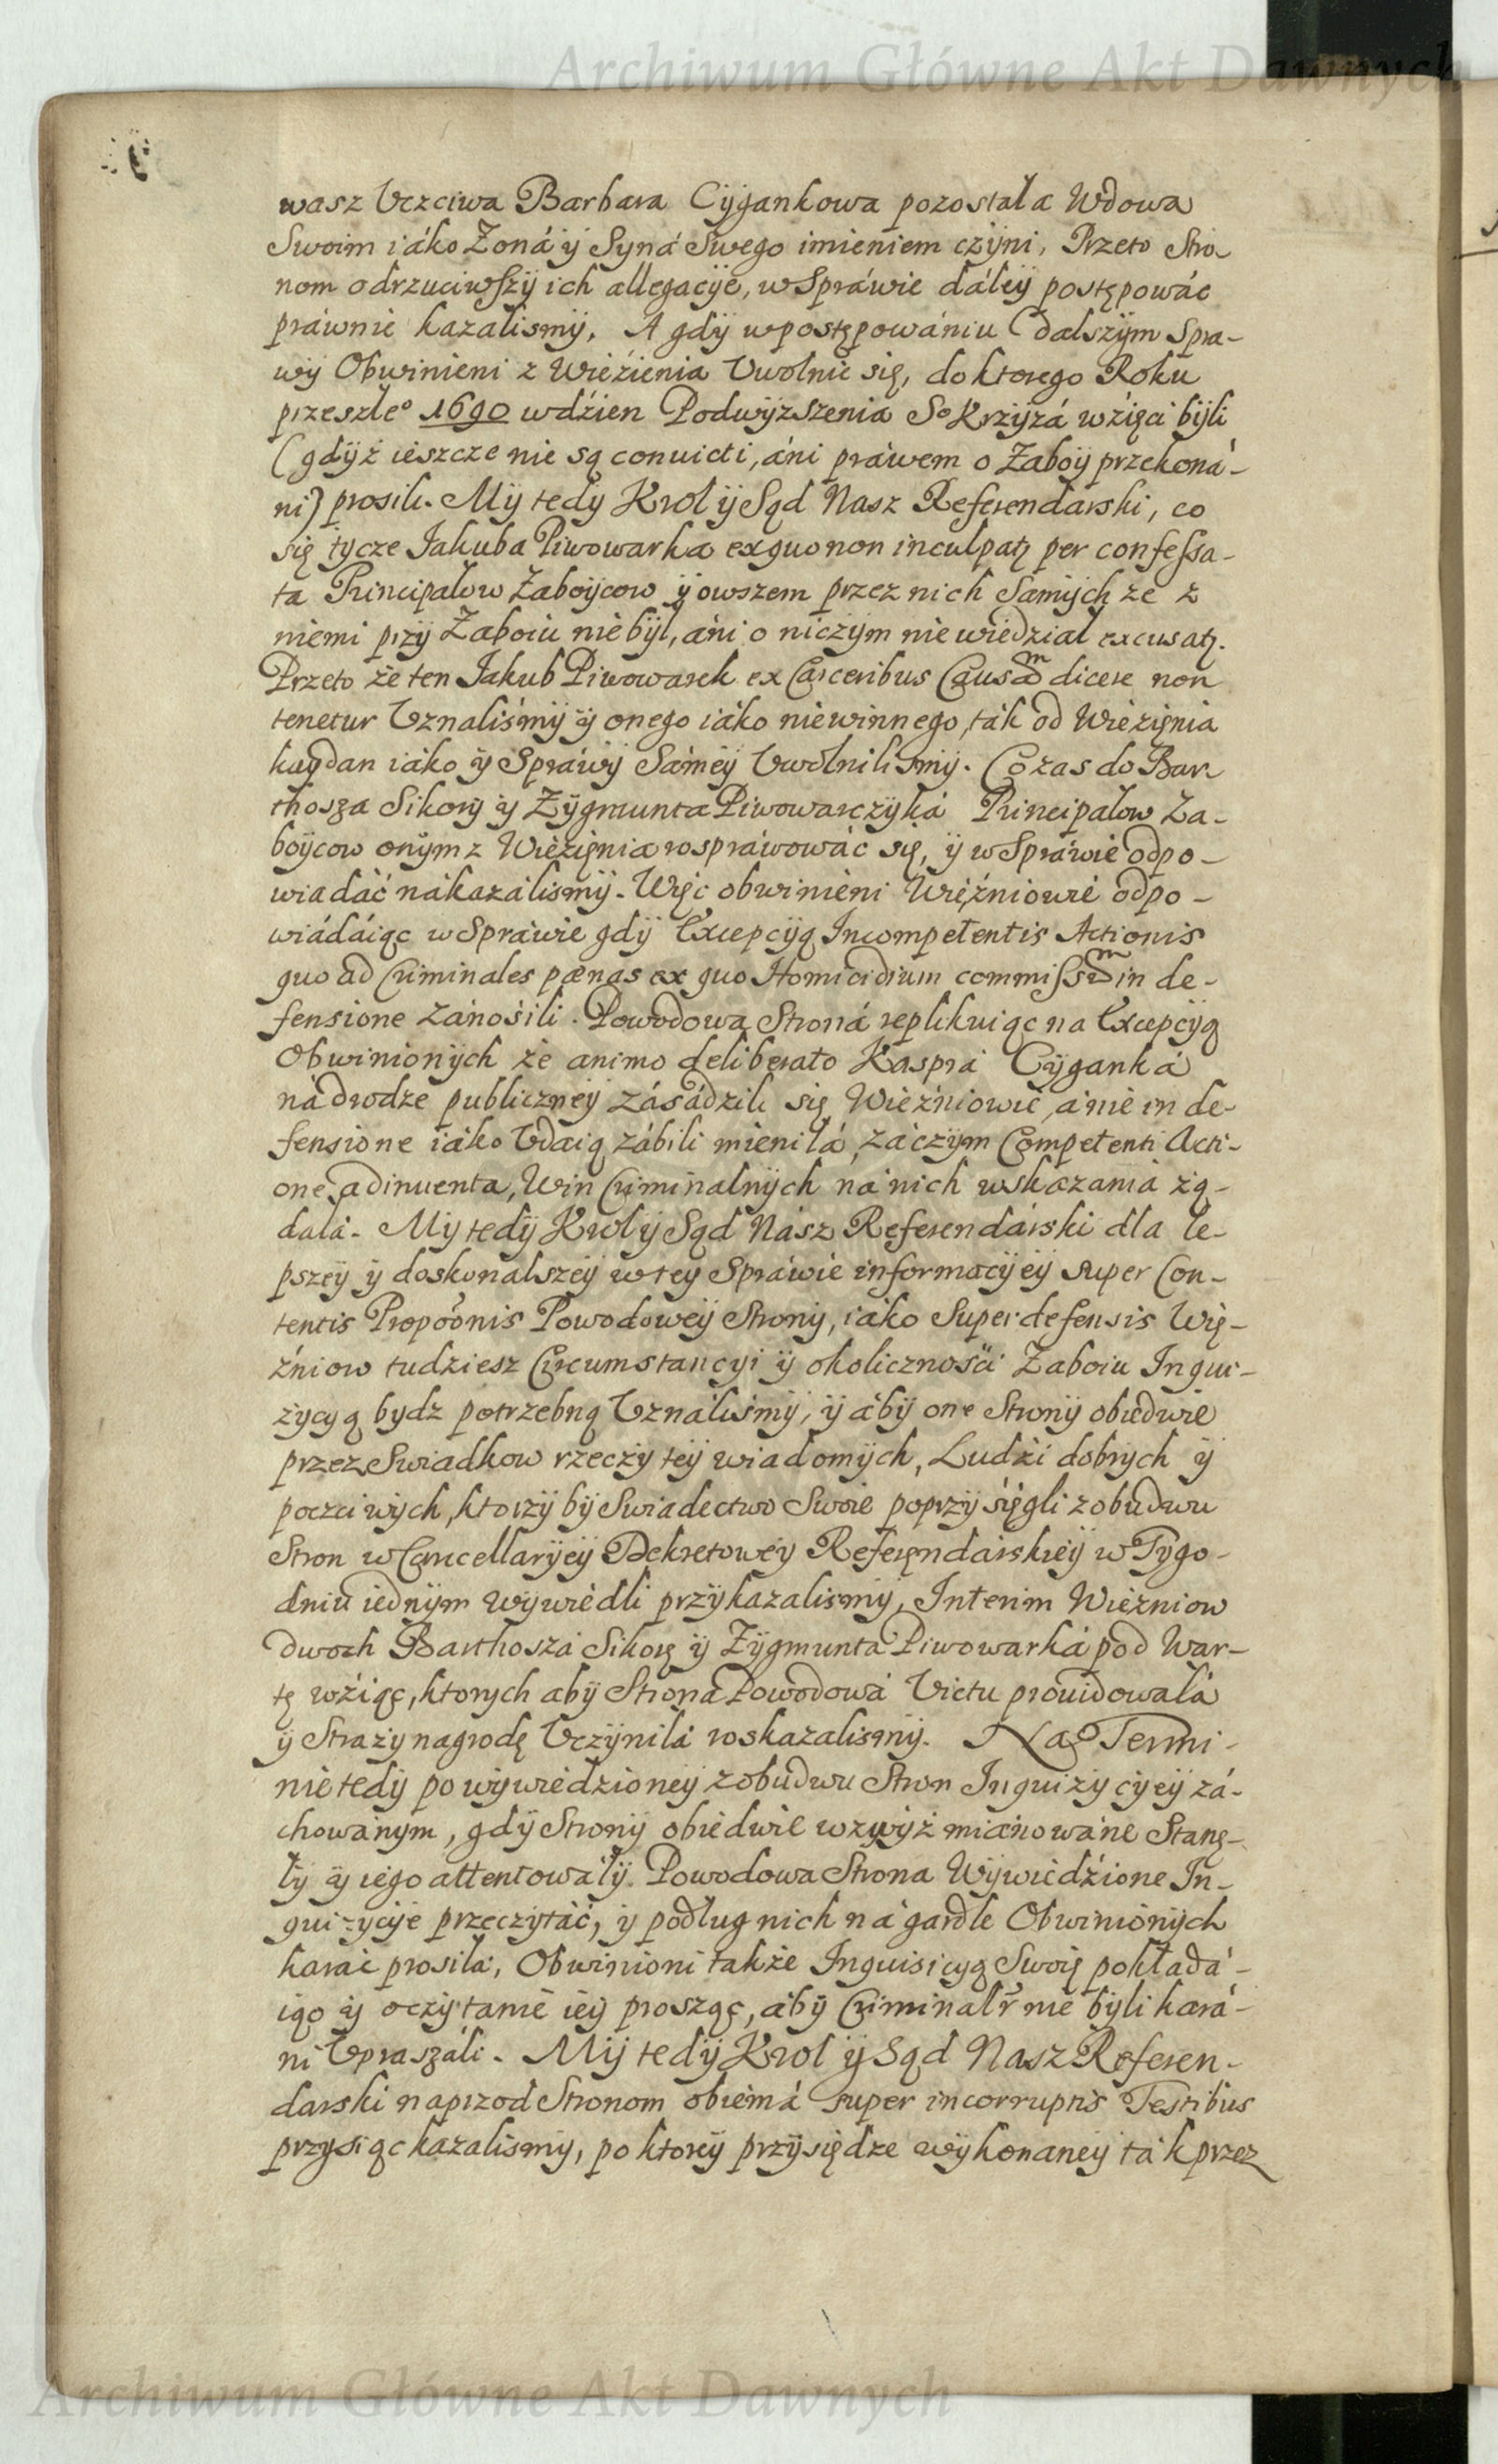 Archiwum Główne Akt Dawnych
wasz Vczciwa Barbara Cÿgankowa pozostała Wdowa
Swoim iáko Żoná ÿ Syná Swego imieniem czÿni, Przeto Stro
nom odrzuciwszÿ ich allegacÿe, w Spráwie dáleÿ postępowác
práwnie kazalismÿ, A gdÿ wpostępowániu dalszÿm Spra-
wÿ Obwinieni z Wieźienia Vwolnić się, do ktorego Roku
przeszłeº 1690 wdźien Podwÿzszenia Sº Krzÿzá wźięci bÿli
(gdÿż ieszcze nie są conuicti, áni práwem o Zaboÿ przekoná-
ni) prosili. Mÿ tedy Krol ÿ Sąd Nasz Referendarski, co
się tycze Jakuba Piwowarka exquo non inculpatq per confessa-
ta Principałow Zaboÿcow ÿ owszem przez nich Samÿch że z
niemi przÿ Zaboiu nie bÿł, áni o niczÿm nie wiedział excusatq.
Przeto że ten Jakub Piwowarek ex Carceribus Causam dicere non
tenetur Vznalismÿ ÿ onego iáko niewinnego, ták od Wieźięnia
kaÿdan iáko ÿ Spráwÿ Sámeÿ Vwolnilismÿ. Co zas do Bar
thosza Sikorÿ ÿ Zÿgmunta Piwowarczÿká Principałow Za-
boÿcow onÿm z Wieźięnia rospráwowác się, ÿ w Spráwie odpo-
wiadáć nákazálismÿ. Więc obwinieni Więźniowie odpo-
wiádáiąc w Spráwie gdÿ Excepcÿą Incompetentis Actionis
quo ad Criminales pœnas ex quo Homicidium commissum in de-
fensione zánosili. Powodowa Stroná replikuiąc na Excepcÿą
Obwinionÿch że animo deliberato Kasprá Cÿganká
ná drodze publiczneÿ zásádzili się Wieźniowie, á nie in de-
fensione iáko Vdaią zábili mieniłá, záczÿm Competenti Acti-
one adinuenta, Win Criminalnÿch ná nich wskazania żą-
dałá. Mÿ tedÿ Krol ÿ Sąd Nász Referendárski dla le-
pszeÿ ÿ doskonalszeÿ w teÿ Spráwie informacÿeÿ super Con-
tentis Propōonis Powodoweÿ Stronÿ, iáko Super defensis Wię-
źniow tudziesz Circumstancyi ÿ okolicznosci Zaboiu Inqui-
zÿcyą bydz potrzebną Vználismÿ, ÿ ábÿ one Stronÿ obiedwie
przez Swiadkow rzeczÿ teÿ wiadomÿch, Ludźi dobrÿch ÿ
poczciwÿch, ktorzÿ bÿ Swiadectwo Swoie poprzÿsięgli z obudwu
Stron w Cancellarÿeÿ Dekretoweÿ Referęndárskieÿ w Tÿgo-
dniu iednÿm wÿwiedli przÿkazalismÿ, Interim Wieźniow
dwoch Barthoszá Sikorę ÿ Zÿgmunta Piwowarká pod War-
tę wźiąc, ktorych abÿ Strona Powodowá Victu prouidowałá
ÿ Straży nagrodę Vczÿniłá roskazalismÿ. Na Termi-
nie tedÿ po wÿwiedzioneÿ z obudwu Stron Inquizÿcÿeÿ zá-
chowánÿm, gdÿ Stronÿ obiedwie wzwÿż miánowáne Stanę-
łÿ ÿ iego attentowáłÿ. Powodowa Strona Wÿwiedźione In-
quizÿcÿe przeczÿtáć, ÿ podług nich ná gardle Obwinionÿch
karáć prosiłá, Obwinioni także Inquisicyą Swoię pokładá-
iąc ÿ oczÿtanie ieÿ prosząc, abÿ Criminalr nie bÿli kará-
ni Vpraszáli. Mÿ tedÿ Krol ÿ Sąd Nasz Referen-
darski naprzod Stronom obiemá super incorruptis Testibus
przÿsiąc kazalismÿ, po ktoreÿ przÿsiędze wÿkonaneÿ ták przez
Archiwum Główne Akt Dawnych